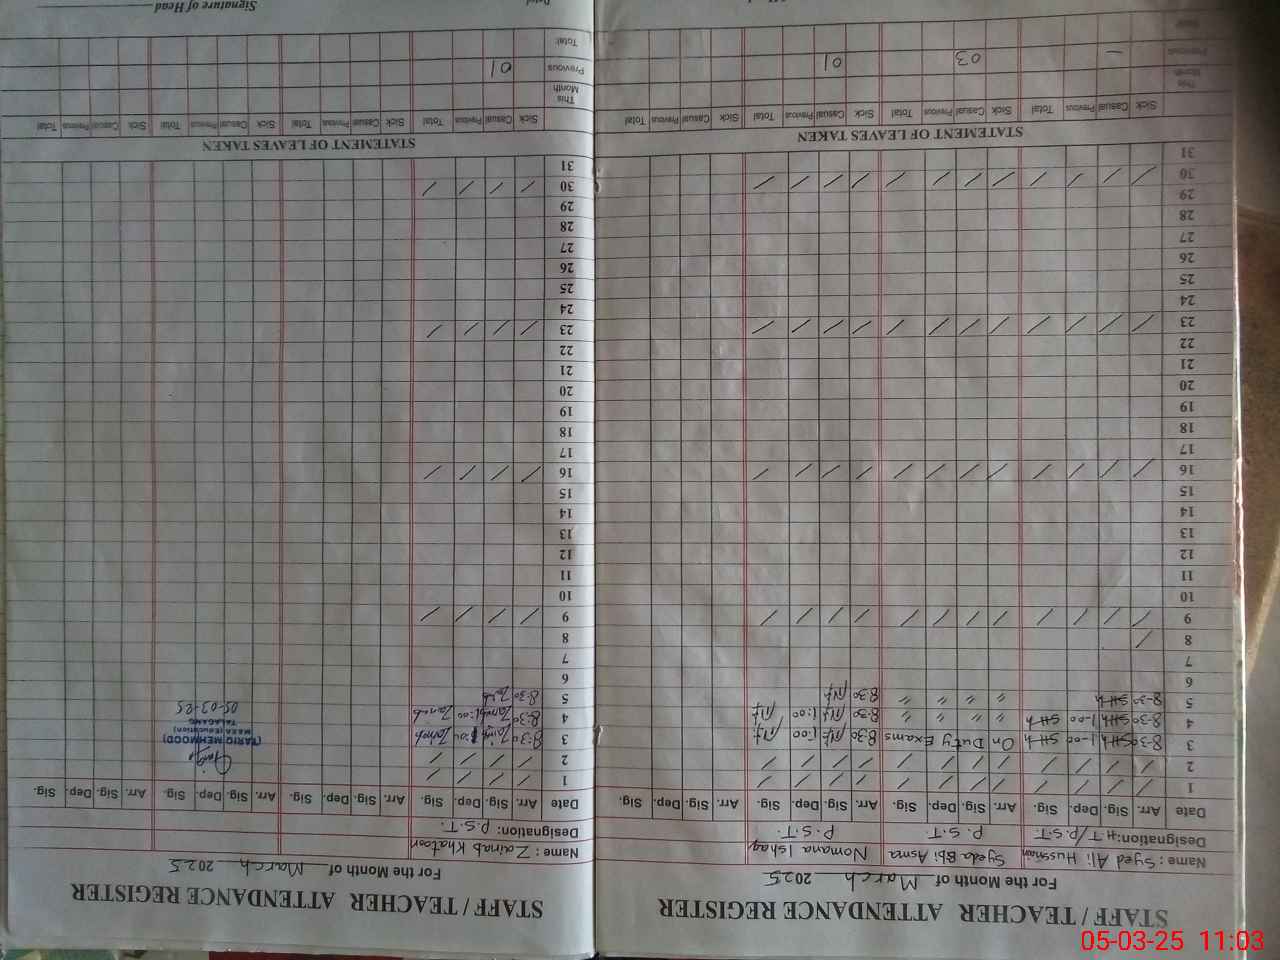 STAFF / TEACHER ATTENDANCE REGISTER
For the Month of March 2025
Name: Syed Ali Hussnain Syeda Bbi Asma Nomana Ishaq
Designation: H.T/P.S.T. P.S.T. P.S.T.
Date Arr. Sig. Dep. Sig. Arr. Sig. Dep. Sig. Arr. Sig. Dep. Sig. Arr. Sig. Dep. Sig.
1 / / / / / / / / / / / /
2 / / / / / / / / / / / /
3 8-30 1-00 On Duty Exams 8.30 1:00
4 8-30 1-00 " " " " 8.30 1:00
5 8-30 " " " " 8.30
6
7
8 /
9 / / / / / / / / / / / /
10
11
12
13
14
15
16 / / / / / / / / / / / /
17
18
19
20
21
22
23 / / / / / / / / / / / /
24
25
26
27
28
29
30 / / / / / / / / / / / /
31
STATEMENT OF LEAVES TAKEN
Sick Casual Previous Total Sick Casual Previous Total Sick Casual Previous Total Sick Casual Previous Total
This Month
Previous — 03 01
Total
STAFF / TEACHER ATTENDANCE REGISTER
For the Month of March 2025
Name: Zainab Khatoon
Designation: P.S.T.
Date Arr. Sig. Dep. Sig. Arr. Sig. Dep. Sig. Arr. Sig. Dep. Sig. Arr. Sig. Dep. Sig.
1 / / / /
2 / / / /
3 8-30 Zainab 1:00 Zainab
4 8-30 Zainab 1:00 Zainab
5 8-30 Zainab
(TARIQ MEHMOOD)
(Education)
TALAGANG
05-03-25
6
7
8
9 / / / /
10
11
12
13
14
15
16 / / / /
17
18
19
20
21
22
23 / / / /
24
25
26
27
28
29
30 / / / /
31
STATEMENT OF LEAVES TAKEN
Sick Casual Previous Total Sick Casual Previous Total Sick Casual Previous Total Sick Casual Previous Total
This Month
Previous 01
Total
Signature of Head
05-03-25 11:03